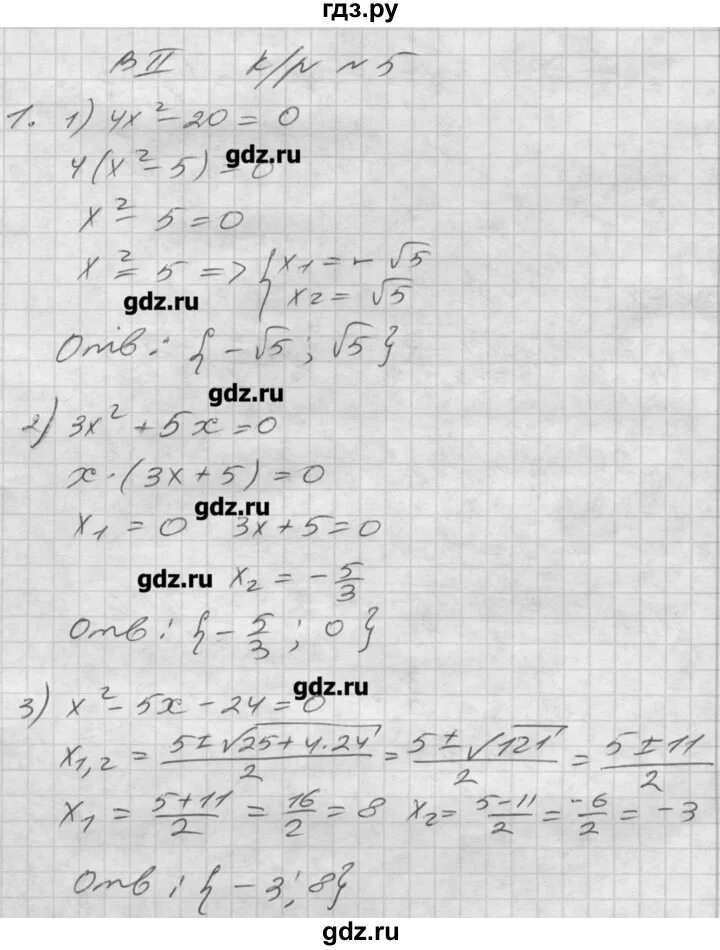 гдз.ру
В II к/р №5
1. 1) 4x² - 20 = 0
4(x² - 5) = 0
gdz.ru
x² - 5 = 0
x² = 5 => { x₁ = - √5
x₂ = √5
gdz.ru
Отв: {-√5; √5}
gdz.ru
2) 3x² + 5x = 0
x·(3x + 5) = 0
gdz.ru
x₁ = 0 3x + 5 = 0
gdz.ru x₂ = -5/3
Отв: {-5/3; 0}
gdz.ru
3) x² - 5x - 24 = 0
x₁,₂ = (5 ± √(25 + 4·24))/2 = (5 ± √121)/2 = (5 ± 11)/2
x₁ = (5+11)/2 = 16/2 = 8 x₂ = (5-11)/2 = -6/2 = -3
Отв: {-3; 8}